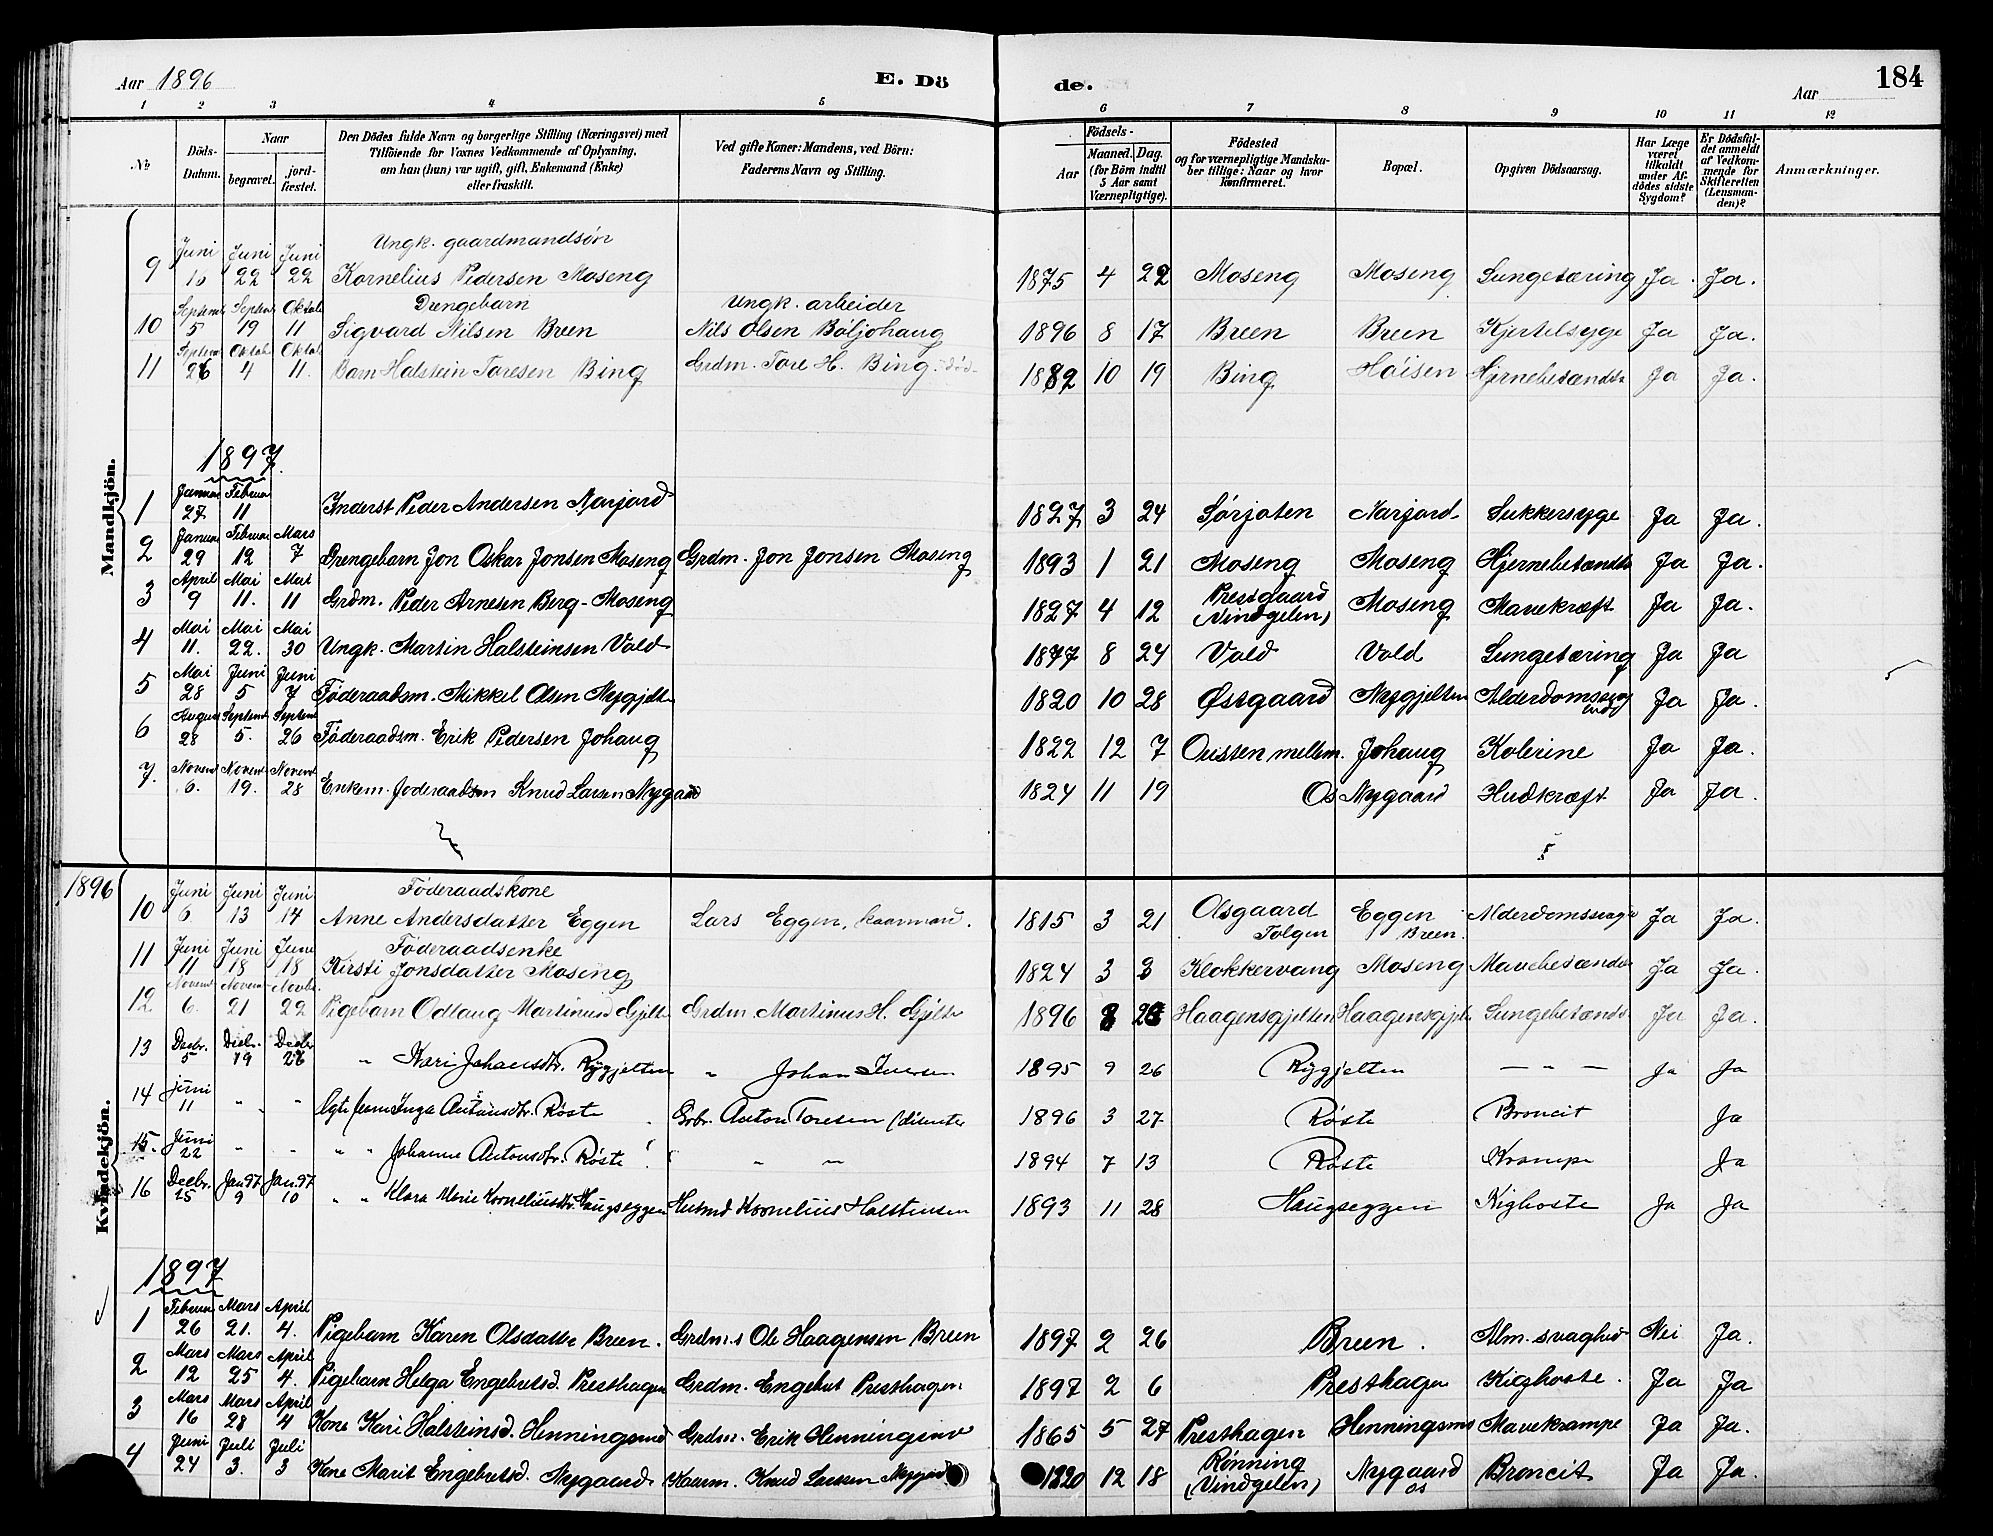 Aar 1896 E. Dö de. Aar 184
1 2 3 4 5 6 7 8 9 10 11 12
No Döds-Datum. Naar begravet. jord-fæstet. Den Dödes fulde Navn og borgerlige Stilling (Næringsvei) med Tilföiende for Voxnes Vedkommende af Oplysning, om han (hun) var ugift, gift, Enkemand (Enke) eller fraskilt. Ved gifte Koner: Mandens, ved Börn: Faderens Navn og Stilling. Födsels- Aar Maaned. Dag. (for Börn indtil 5 Aar samt Værnepligtige). Födested og for værnepligtige Mandskaber tillige: Naar og hvor Konfirmeret. Bopæl. Opgiven Dödsaarsag. Har Læge været tilkaldt under Afdödes sidste Sygdom? Er Dödsfaldet anmeldt af Vedkommende for Skifteretten (Lensmanden)? Anmærkninger.
Mandkjön.
Juni Juni Juni Ungk. gaardmandsøn
9 10 22 22 Kornelius Pedersen Moseng 1875 4 22 Moseng Moseng Lungetæring Ja Ja.
Septemb Septem Oktob Drengebarn Ungk. arbeider
10 5 19 11 Sigvard Nilsen Breen Nils Olsen Böljohaug 1896 8 17 Breen Breen Kjertelsyge Ja Ja.
Septem Oktob Oktob
11 26 4 11. Barn Halstein Toresen Bing Grdm. Tore H. Bing 1882 10 19 Bing Höisen Hjernebetændels Ja Ja.
1897.
Januar Februar
1 27 11 Inderst Peder Andersen Narjord 1827 3 24 Sørjoten Narjord Sukkersyge Ja Ja.
Januar Februar Mars
2 29 12 7 Drengebarn Jon Oskar Jonsen Moseng Grdm. Jon Jonsen Moseng 1893 1 21 Moseng Moseng Hjernebetændels Ja Ja.
April Mai Mai
3 9 11. 11 Grdm. Peder Arnesen Berg-Moseng 1827 4 12 Prestgaard (Vindgelen) Moseng Mavekræft Ja Ja.
Mai Mai Mai
4 11. 22. 30 Ungk. Martin Halsteinsen Vold 1877 8 24 Vold Vold Lungetæring Ja Ja
Mai Juni Juni
5 28 5 7 Føderaadsm. Mikkel Olsen Nygjelten 1820 10 28 Østgaard Nygjelten Alderdomssvag Ja Ja.
August Septemb Septemb
6 28 5. 26 Føderaadsm. Erik Pedersen Johaug 1822 12 7 Oristen mellem. Johaug Kolerine Ja Ja.
Novemb Novemb Novemb
7. 6. 19. 28 Enkem. foderaadsm Knud Larsen Nygaard 1824 11 19 Os Nygaard Hudkræft Ja Ja.
Kvindekjön.
1896 Juni Juni Juni Föderaadskone
10 6. 13 14 Anne Andersdatter Eggen Lars Eggen, kaarmand. 1815 3 21 Olsgaard Tolgen Eggen Breen. Alderdomssvage Ja Ja.
Juni Juni Juni Föderaadsenke
11 11 18 18 Kirsti Jonsdatter Moseng 1824 3 3 Klokkervang Moseng Mavebetændels Ja Ja.
Novemb Novem Novbr.
12 6. 21 22 Pigebarn Odlaug Martinusd Gjelt Grdm. Martinus H. Gjelt 1896 8 28 Haagensgjelten Haagensgjelt Lungebetænds Ja Ja.
13 Decbr. 5 Decbr. 19 Decbr 27 " Kari Johansdtr. Rygjelten " Johan Iversen 1895 9 26 Rygjelten — " — Ja Ja
14 Juni 11 " " Ægte fem Inga Antonsdtr. Röste Gbr. Anton Toresen (disenter 1896 3 27 Röste Broncit Ja
15. Juni 22 " " " " Johanne Antonsdtr. Röste " " 1894 7 13 Röste Krampe Ja
16 Decbr. 15 Jan 97 9 Jan. 97 10 " " Klara Marie Korneliusdtr. Haugseggen Husmd Kornelius Halstensen 1893 11 28 Haugseggen Kighoste Ja Ja
1897
Februar Mars April
1 26 21. 4. Pigebarn Karen Olsdatter Breen. Grdm.s Ole Haagensen Breen 1897 2 26 Breen. Alm. svaghed Nei Ja.
Mars Mars April
2 12 25 4. Pigebarn Helga Engebretsd. Presthagen Grdm. Engebret Presthagen 1897 2 6 Presthagen Kighoste. Ja Ja
Mars Mars April
3 16 28 4 Kone Kari Halsteinsd. Henningsmo Grdm. Erik Henningsmo 1865 5 27 Presthagen Henningsmo Mavekrampe Ja Ja.
Juni Juli Juli
4 24 3. 3 Kone Marit Engebretsd. Nygaard Kaarm. Knud Larsen Nygaard 1820 12 18 Rønning (Vindgelen) Nygaard Os Broncit Ja Ja.